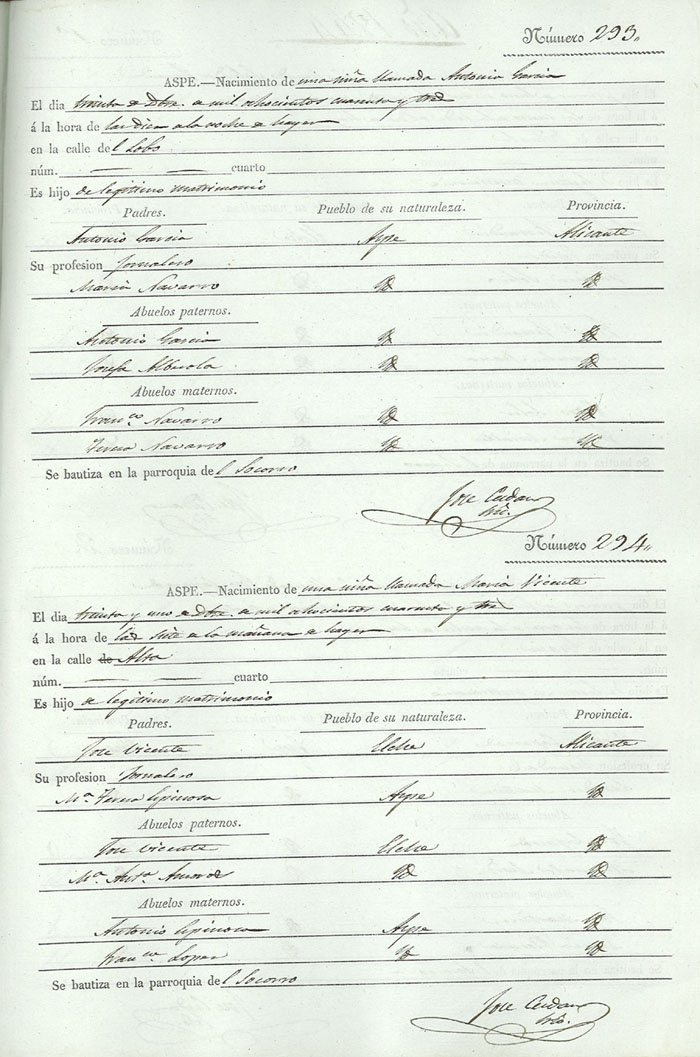 Número 293.
ASPE.—Nacimiento de una niña llamada Antonia Garcia
El dia treinta de Dbre. de mil ochocientos cuarenta y tres
á la hora de las diez de la noche de hayer
en la calle del Lobo
núm. — — cuarto
Es hijo de legitimo matrimonio
Padres. Pueblo de su naturaleza. Provincia.
Antonio Garcia Aspe Alicante
Su profesion Jornalero
Maria Navarro Yd Yd
Abuelos paternos.
Antonio Garcia Yd Yd
Josefa Albeola Yd Yd
Abuelos maternos.
Franco. Navarro Yd Yd
Teresa Navarro Yd Yd
Se bautiza en la parroquia del Socorro
Jose
Número 294.
ASPE.—Nacimiento de una niña llamada Maria Vicente
El dia treinta y uno de Dbre. de mil ochocientos cuarenta y tres
á la hora de las siete de la mañana de hayer
en la calle de Alta
núm. — — cuarto
Es hijo de legitimo matrimonio
Padres. Pueblo de su naturaleza. Provincia.
Jose Vicente Elche Alicante
Su profesion Jornalero
Ma. Teresa Espinosa Aspe Yd
Abuelos paternos.
Jose Vicente Elche Yd
Ma. Anta. Amoros Yd Yd
Abuelos maternos.
Antonio Espinosa Aspe Yd
Franca. Lopez Yd Yd
Se bautiza en la parroquia del Socorro
Jose